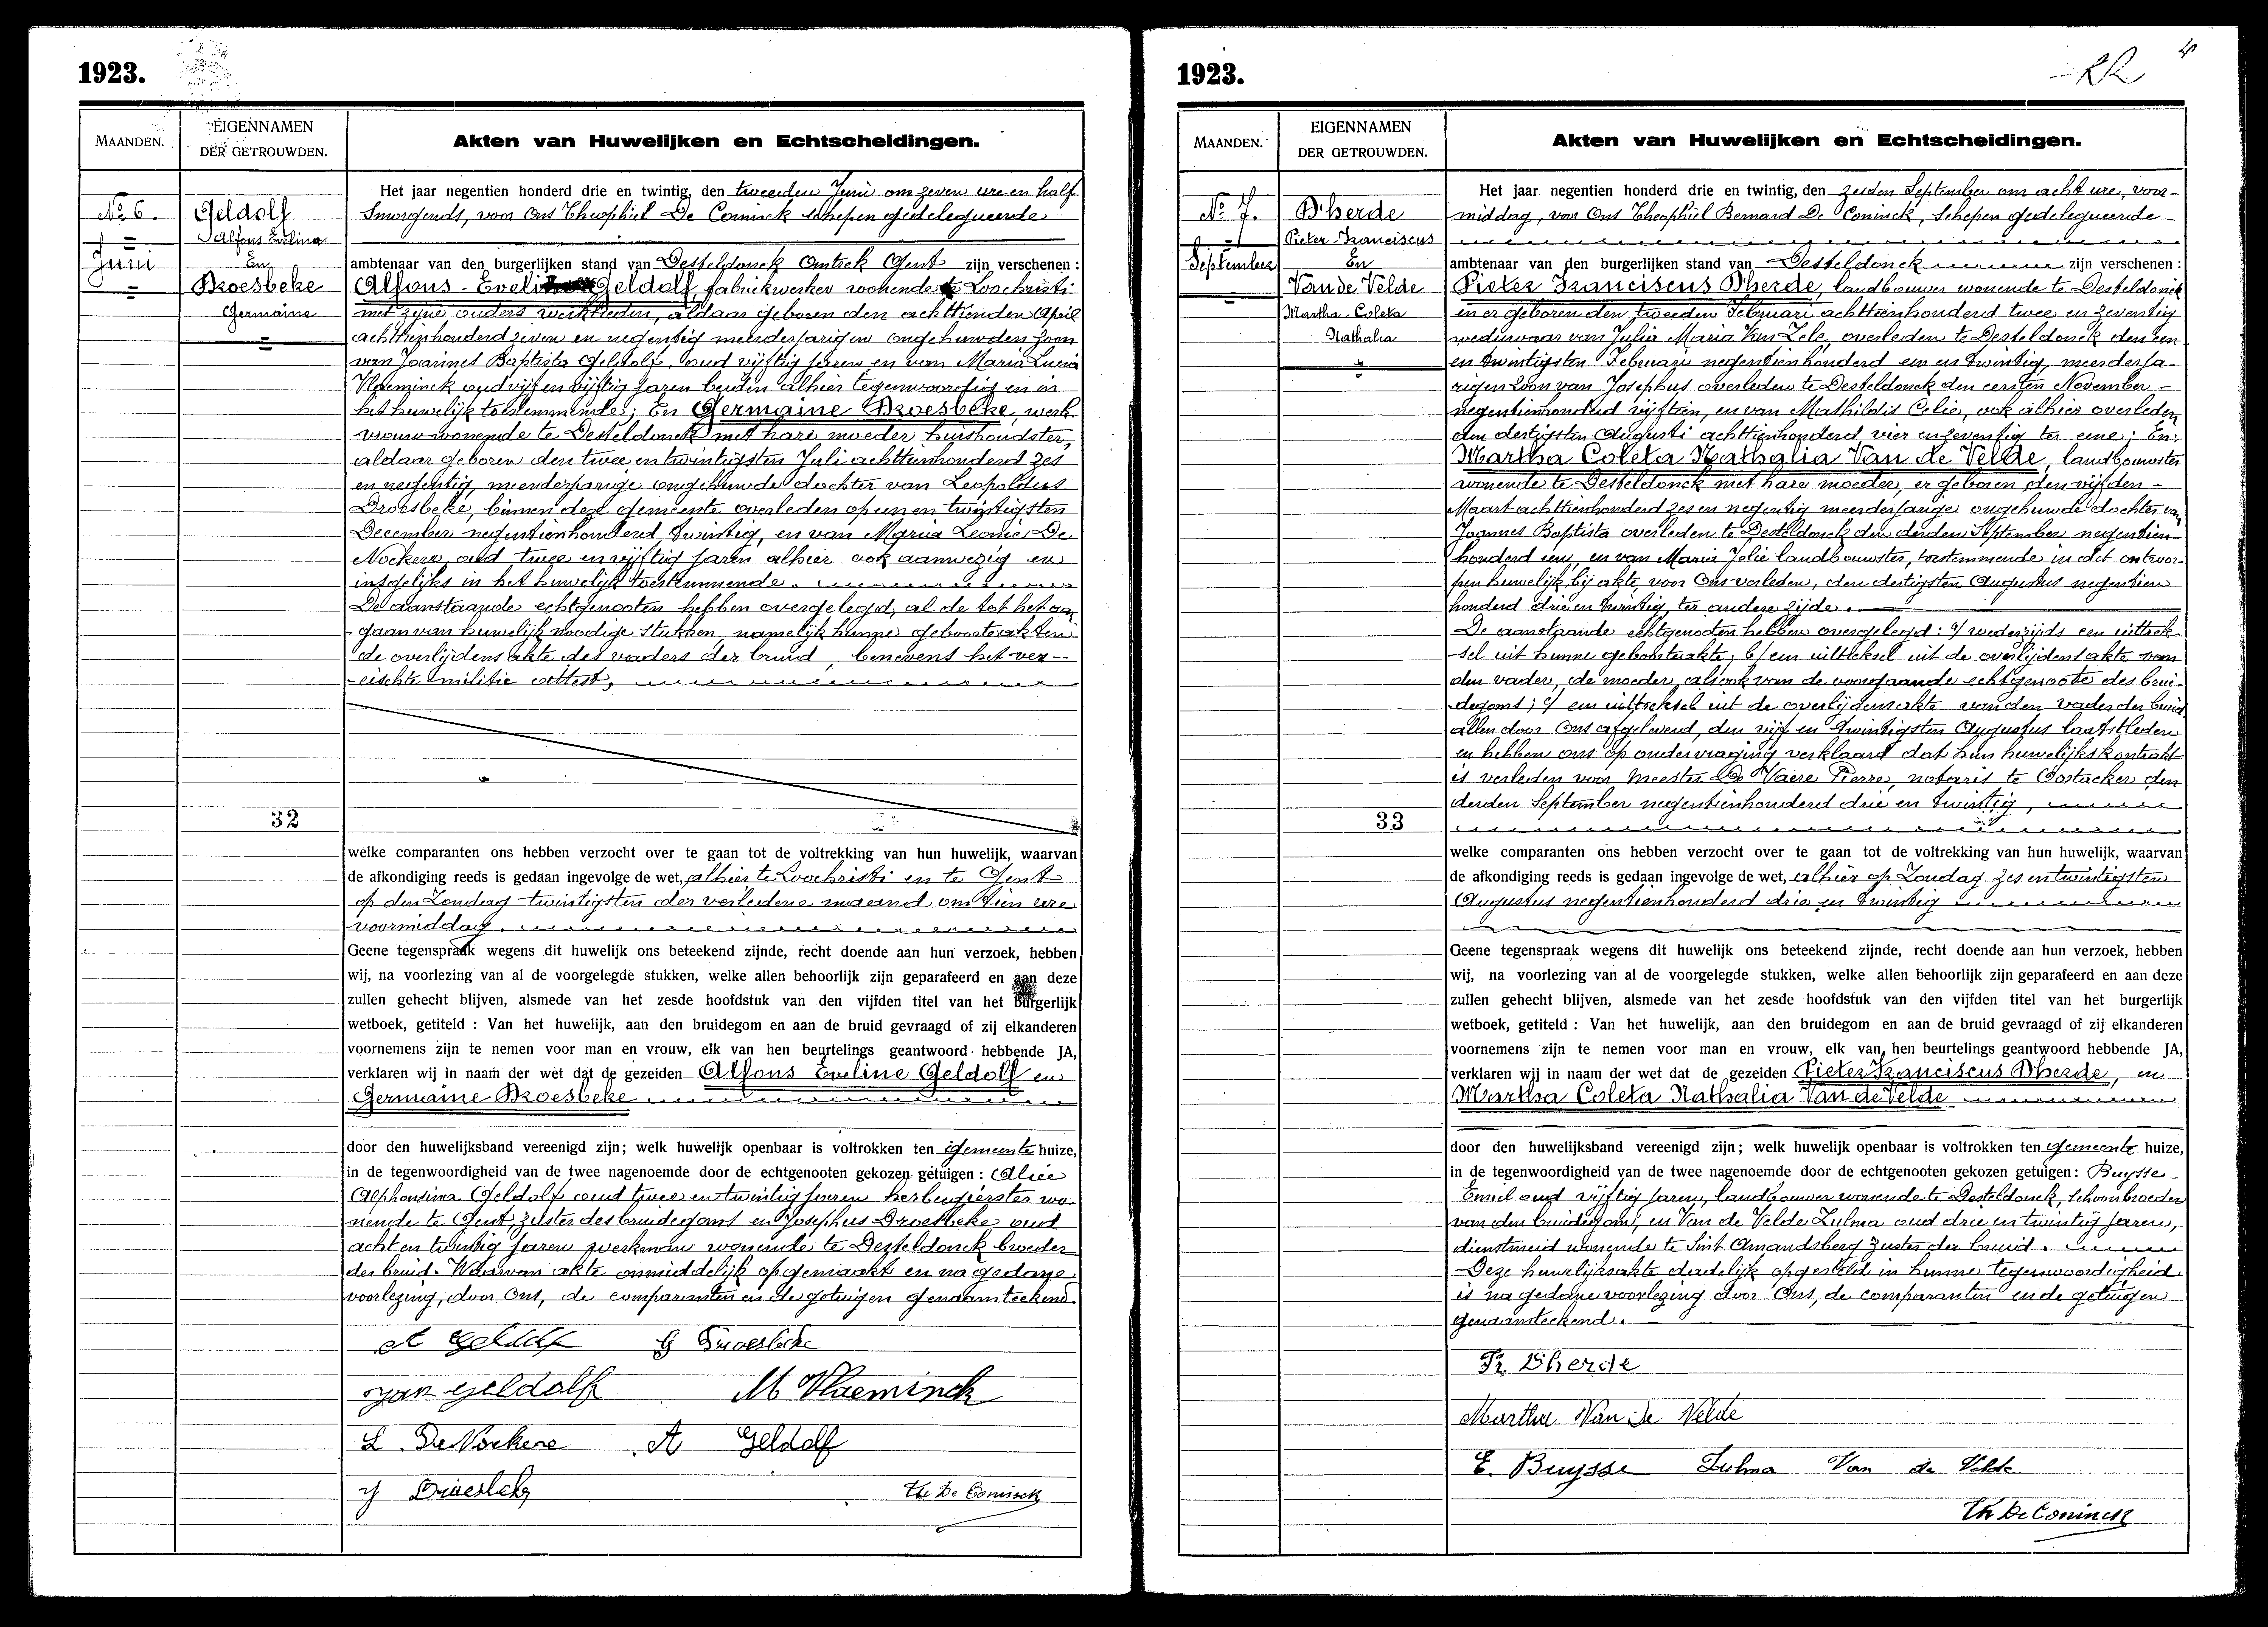 1923.
MAANDEN.
EIGENNAMEN
DER GETROUWDEN.
Akten van Huwelijken en Echtscheidingen.
No 6.
Juni
Geldolf
Alfons Evelina
En
Droesbeke
Germaine
32
Het jaar negentien honderd drie en twintig, den tweeden Juni om zeven ure en half
smorgends, voor Ons Theophiel De Coninck schepen gedelegueerde
ambtenaar van den burgerlijken stand van Desteldonck Omtrek Gent zijn verschenen :
Alfons - Eveli Geldolf, fabriekwerker wonende te Loochristi
met zijne ouders werklieden, aldaar geboren den achttienden April
achttienhonderd zeven en negentig meerderjarigen ongehuwden zoon
van Joannes Baptista Geldolf, oud vijftig jaren en van Maria Lucia
Vlaeminck oud vijf en vijftig jaren beiden alhier tegenwoordig en in
het huwelijk toestemmende; En Germaine Droesbeke, werk-
vrouw wonende te Desteldonck met hare moeder huishoudster,
aldaar geboren den twee en twintigsten Juli achttienhonderd zes
en negentig, meerderjarige ongehuwde dochter van Leopoldus
Droesbeke, binnen deze gemeente overleden op een en twintigsten
December negentienhonderd twintig, en van Maria Leonie De
Nockere, oud twee en vijftig jaren alhier ook aanwezig en
insgelijks in het huwelijk toestemmende.
De aanstaande echtgenooten hebben overgelegd, al de tot het aan-
gaan van huwelijk noodige stukken, namelijk hunne geboorteakten
de overlijdens akte des vaders der bruid, benevens het ver-
eischte militie attest,
welke comparanten ons hebben verzocht over te gaan tot de voltrekking van hun huwelijk, waarvan
de afkondiging reeds is gedaan ingevolge de wet, alhier te Loochristi en te Gent
op den Zondag twintigsten der verledene maand om tien ure
voormiddag.
Geene tegenspraak wegens dit huwelijk ons beteekend zijnde, recht doende aan hun verzoek, hebben
wij, na voorlezing van al de voorgelegde stukken, welke allen behoorlijk zijn geparafeerd en aan deze
zullen gehecht blijven, alsmede van het zesde hoofdstuk van den vijfden titel van het burgerlijk
wetboek, getiteld : Van het huwelijk, aan den bruidegom en aan de bruid gevraagd of zij elkanderen
voornemens zijn te nemen voor man en vrouw, elk van hen beurtelings geantwoord hebbende JA,
verklaren wij in naam der wet dat de gezeiden Alfons Eveline Geldolf en
Germaine Droesbeke
door den huwelijksband vereenigd zijn; welk huwelijk openbaar is voltrokken ten gemeente huize,
in de tegenwoordigheid van de twee nagenoemde door de echtgenooten gekozen getuigen : Alice
Alphonsina Geldolf oud twee en twintig jaren herbergierster wo-
nende te Gent, zuster des bruidegoms en Josephus Droesbeke oud
acht en twintig jaren werkman wonende te Desteldonck broeder
der bruid. Waarvan akte onmiddelijk opgemaakt en na gedane
voorlezing, door Ons, de comparanten en de getuigen genaamteekend.
A Geldolf G Droesbeke
Jan Geldolf M Vlaeminck
L DeNockere A Geldolf
J Droesbeke Th De Coninck
1923.
MAANDEN.
EIGENNAMEN
DER GETROUWDEN.
Akten van Huwelijken en Echtscheidingen.
No 7.
September
D'herde
Pieter-Franciscus
En
Van de Velde
Martha-Coleta
Nathalia
33
Het jaar negentien honderd drie en twintig, den zesden September om acht ure, voor-
middag, voor Ons Theophiel Bernard De Coninck, schepen gedelegueerde
ambtenaar van den burgerlijken stand van Desteldonck zijn verschenen :
Pieter Franciscus D'herde, landbouwer wonende te Desteldonck
en er geboren den tweeden Februari achttienhonderd twee en zeventig
weduwaar van Julia Maria Van Zele, overleden te Desteldonck den een
en twintigsten Februari negentienhonderd een en twintig, meerderja-
rigen zoon van Josephus overleden te Desteldonck den eersten November
negentienhonderd vijftien, en van Mathildis Celie, ook alhier overleden
den dertigsten Augusti achttienhonderd vier en zeventig ter eene; En:
Martha Coleta Nathalia Van de Velde, landbouwster
wonende te Desteldonck met hare moeder, er geboren den vijfden
Maart achttienhonderd zes en negentig meerderjarige ongehuwde dochter van
Joannes Baptista overleden te Desteldonck den derden September negentien-
honderd een, en van Maria Jolie landbouwster, toestemmende in dit ontwor-
pen huwelijk bij akte voor Ons verleden, den dertigsten Augustus negentien
honderd drie en twintig, ter andere zijde.
De aanstaande echtgenoten hebben overgelegd : a/ wederzijds een uittrek-
sel uit hunne geboorteakte; b/ een uittreksel uit de overlijdens akte van
den vader, de moeder, alsook van de voorgaande echtgenoote des brui-
degoms; c/ een uittreksel uit de overlijdensakte van den vader der bruid
allen door Ons afgeleverd, den vijf en twintigsten Augustus laatstleden
en hebben ons op ondervraging verklaard dat hun huwelijkskontrakt
is verleden voor Meester De Vaere Pierre, notaris te Oostacker den
derden September negentienhonderd drie en twintig,
welke comparanten ons hebben verzocht over te gaan tot de voltrekking van hun huwelijk, waarvan
de afkondiging reeds is gedaan ingevolge de wet, alhier op Zondag zes en twintigsten
Augustus negentienhonderd drie en twintig
Geene tegenspraak wegens dit huwelijk ons beteekend zijnde, recht doende aan hun verzoek, hebben
wij, na voorlezing van al de voorgelegde stukken, welke allen behoorlijk zijn geparafeerd en aan deze
zullen gehecht blijven, alsmede van het zesde hoofdstuk van den vijfden titel van het burgerlijk
wetboek, getiteld : Van het huwelijk, aan den bruidegom en aan de bruid gevraagd of zij elkanderen
voornemens zijn te nemen voor man en vrouw, elk van hen beurtelings geantwoord hebbende JA,
verklaren wij in naam der wet dat de gezeiden Pieter Franciscus D'herde, en
Martha Coleta Nathalia Van de Velde
door den huwelijksband vereenigd zijn; welk huwelijk openbaar is voltrokken ten gemeente huize,
in de tegenwoordigheid van de twee nagenoemde door de echtgenooten gekozen getuigen : Buysse
Emiel oud vijftig jaren, landbouwer wonende te Desteldonck, schoonbroeder
van den bruidegom, en Van de Velde Zulma oud drie en twintig jaren,
dienstmeid wonende te Sint Amandsberg zuster der bruid.
Deze huwelijksakte dadelijk opgesteld in hunne tegenwoordigheid
is na gedane voorlezing door Ons, de comparanten en de getuigen
genaamteekend.
Fr. Dherde
Martha Van De Velde
E. Buysse Zulma Van de Velde
Th De Coninck